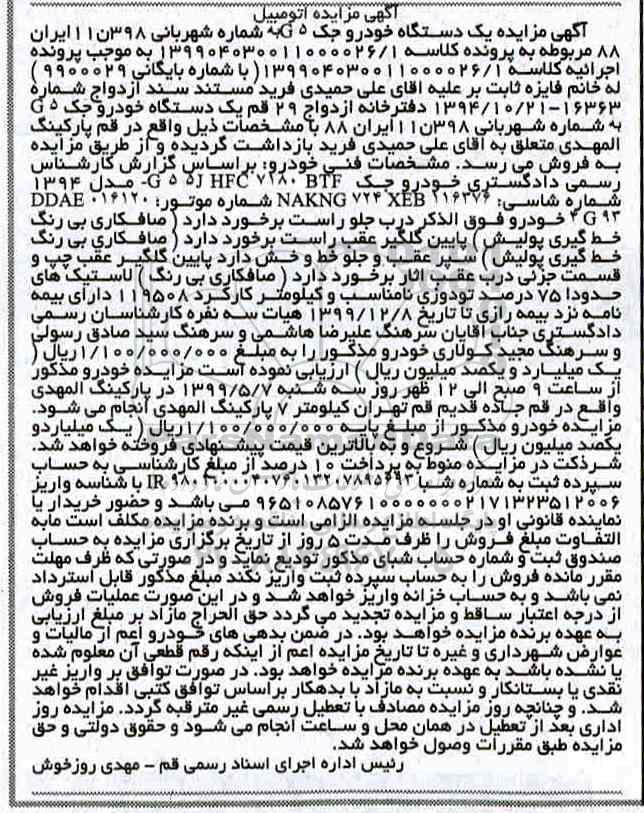 آگهی مزایده اتومبیل
آگهی مزایده یک دستگاه خودرو جک G5 به شماره شهربانی ۳۹۸ن۱۱ایران
۸۸ مربوطه به پرونده کلاسه ۱۳۹۹۰۴۰۳۰۰۱۱۰۰۰۰۲۶/۱ به موجب پرونده
اجرائیه کلاسه ۱۳۹۹۰۴۰۳۰۰۱۱۰۰۰۰۲۶/۱( با شماره بایگانی ۹۹۰۰۰۲۹ )
له خانم فایزه ثابت بر علیه آقای علی حمیدی فرید مستند سند ازدواج شماره
۱۶۳۶۳-۱۳۹۴/۱۰/۲۱ دفترخانه ازدواج ۲۹ قم یک دستگاه خودرو جک G5
به شماره شهربانی ۳۹۸ن۱۱ایران ۸۸ با مشخصات ذیل واقع در قم پارکینگ
المهدی متعلق به آقای علی حمیدی فرید بازداشت گردیده و از طریق مزایده
به فروش می رسد. مشخصات فنی خودرو: براساس گزارش کارشناس
رسمی دادگستری خودرو جک G5 5J HFC ۷۱۸۰ BTF- مدل ۱۳۹۴
شماره شاسی: NAKNG ۷۲۴ XEB ۱۱۶۳۷۶ شماره موتور: DDAE ۰۱۶۱۲۰
۴G ۹۳ خودرو فوق الذکر درب جلو راست برخورد دارد ( صافکاری بی رنگ
خط گیری پولیش ) پایین گلگیر عقب راست برخورد دارد ( صافکاری بی رنگ
خط گیری پولیش) سپر عقب و جلو خط و خش دارد پایین گلگیر عقب چپ و
قسمت جزئی درب عقب آثار برخورد دارد ( صافکاری بی رنگ) لاستیک های
حدودا ۷۵ درصد تودوزی نامناسب و کیلومتر کارکرد ۱۱۹۵۰۸ دارای بیمه
نامه نزد بیمه رازی تا تاریخ ۱۳۹۹/۱۲/۸ هیات سه نفره کارشناسان رسمی
دادگستری جناب آقایان سرهنگ علیرضا هاشمی و سرهنگ سید صادق رسولی
و سرهنگ مجید کولاری خودرو مذکور را به مبلغ ۱/۱۰۰/۰۰۰/۰۰۰ریال (
یک میلیارد و یکصد میلیون ریال ) ارزیابی نموده است مزایده خودرو مذکور
از ساعت ۹ صبح الی ۱۲ ظهر روز سه شنبه ۱۳۹۹/۵/۷ در پارکینگ المهدی
واقع در قم جاده قدیم قم تهران کیلومتر ۷ پارکینگ المهدی انجام می شود.
مزایده خودرو مذکور از مبلغ پایه ۱/۱۰۰/۰۰۰/۰۰۰ریال ( یک میلیاردو
یکصد میلیون ریال ) شروع و به بالاترین قیمت پیشنهادی فروخته خواهد شد.
شرکت در مزایده منوط به پرداخت ۱۰ درصد از مبلغ کارشناسی به حساب
سپرده ثبت به شماره شبا IR با شناسه واریز
۹۶۵۱۰۸۵۷۶۱۰۰۰۰۰۰۰۲۱۷۱۳۲۳۵۱۲۰۰۶ می باشد و حضور خریدار یا
نماینده قانونی او در جلسه مزایده الزامی است و برنده مزایده مکلف است مابه
التفاوت مبلغ فروش را ظرف مدت ۵ روز از تاریخ برگزاری مزایده به حساب
صندوق ثبت و شماره حساب شبای مذکور تودیع نماید و در صورتی که ظرف مهلت
مقرر مانده فروش را به حساب سپرده ثبت واریز نکند مبلغ مذکور قابل استرداد
نمی باشد و به حساب خزانه واریز خواهد شد و در این صورت عملیات فروش
از درجه اعتبار ساقط و مزایده تجدید می گردد حق الحراج مازاد بر مبلغ ارزیابی
به عهده برنده مزایده خواهد بود. در ضمن بدهی های خودرو اعم از مالیات و
عوارض شهرداری و غیره تا تاریخ مزایده اعم از اینکه رقم قطعی آن معلوم شده
یا نشده باشد به عهده برنده مزایده خواهد بود. در صورت توافق بر واریز غیر
نقدی یا بستانکار و نسبت به مازاد با بدهکار براساس توافق کتبی اقدام خواهد
شد. و چنانچه روز مزایده مصادف با تعطیل رسمی غیر مترقبه گردد. مزایده روز
اداری بعد از تعطیل در همان محل و ساعت انجام می شود و حقوق دولتی و حق
مزایده طبق مقررات وصول خواهد شد.
رئیس اداره اجرای اسناد رسمی قم - مهدی روزخوش